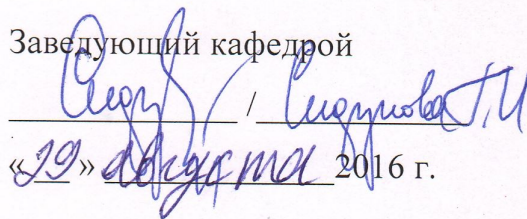 Заведующий кафедрой
/ Сидунова Г.И
«29» августа 2016 г.